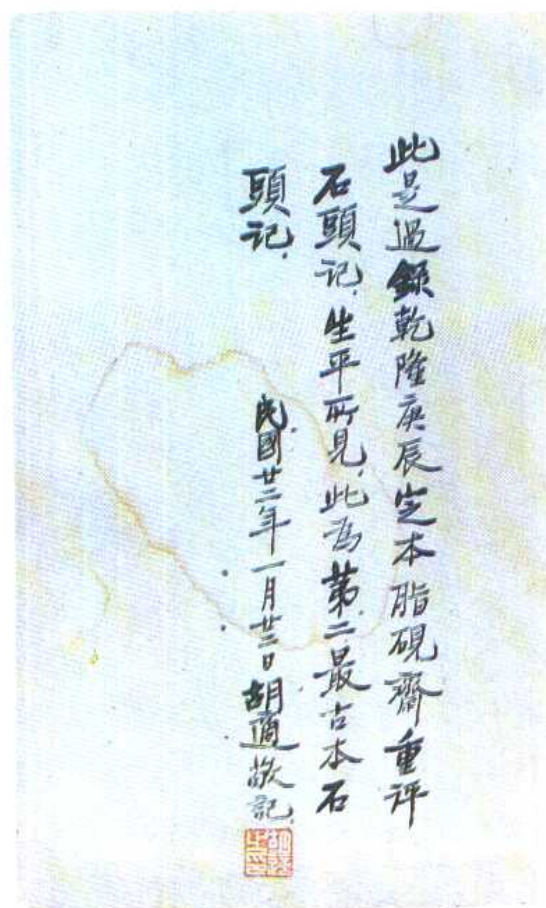 此是過錄乾隆庚辰定本脂硯齋重評
石頭記,生平所見,此為第二最古本石
頭記,
民國廿二年一月廿二日胡適敬記,
胡適之印